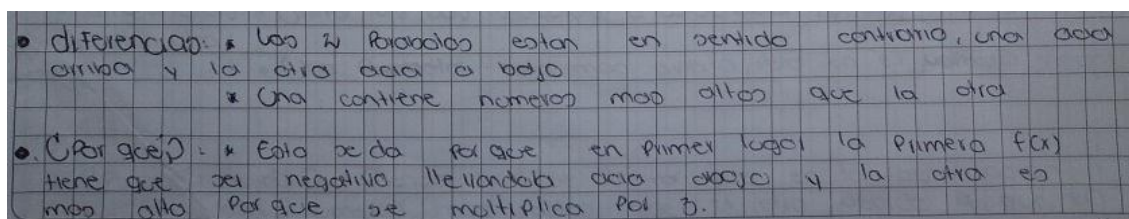 • diferencias: * Las 2 Parabolas estan en sentido contrario, una acia
arriba y la otra acia a bajo
* Una contiene numeros mas altos que la otra
•. ¿Por que?: * Esto se da por que en primer lugar la primera f(x)
tiene que ser negativo llevandola acia abajo y la otra es
mas alta Por que se multiplica Por 3.